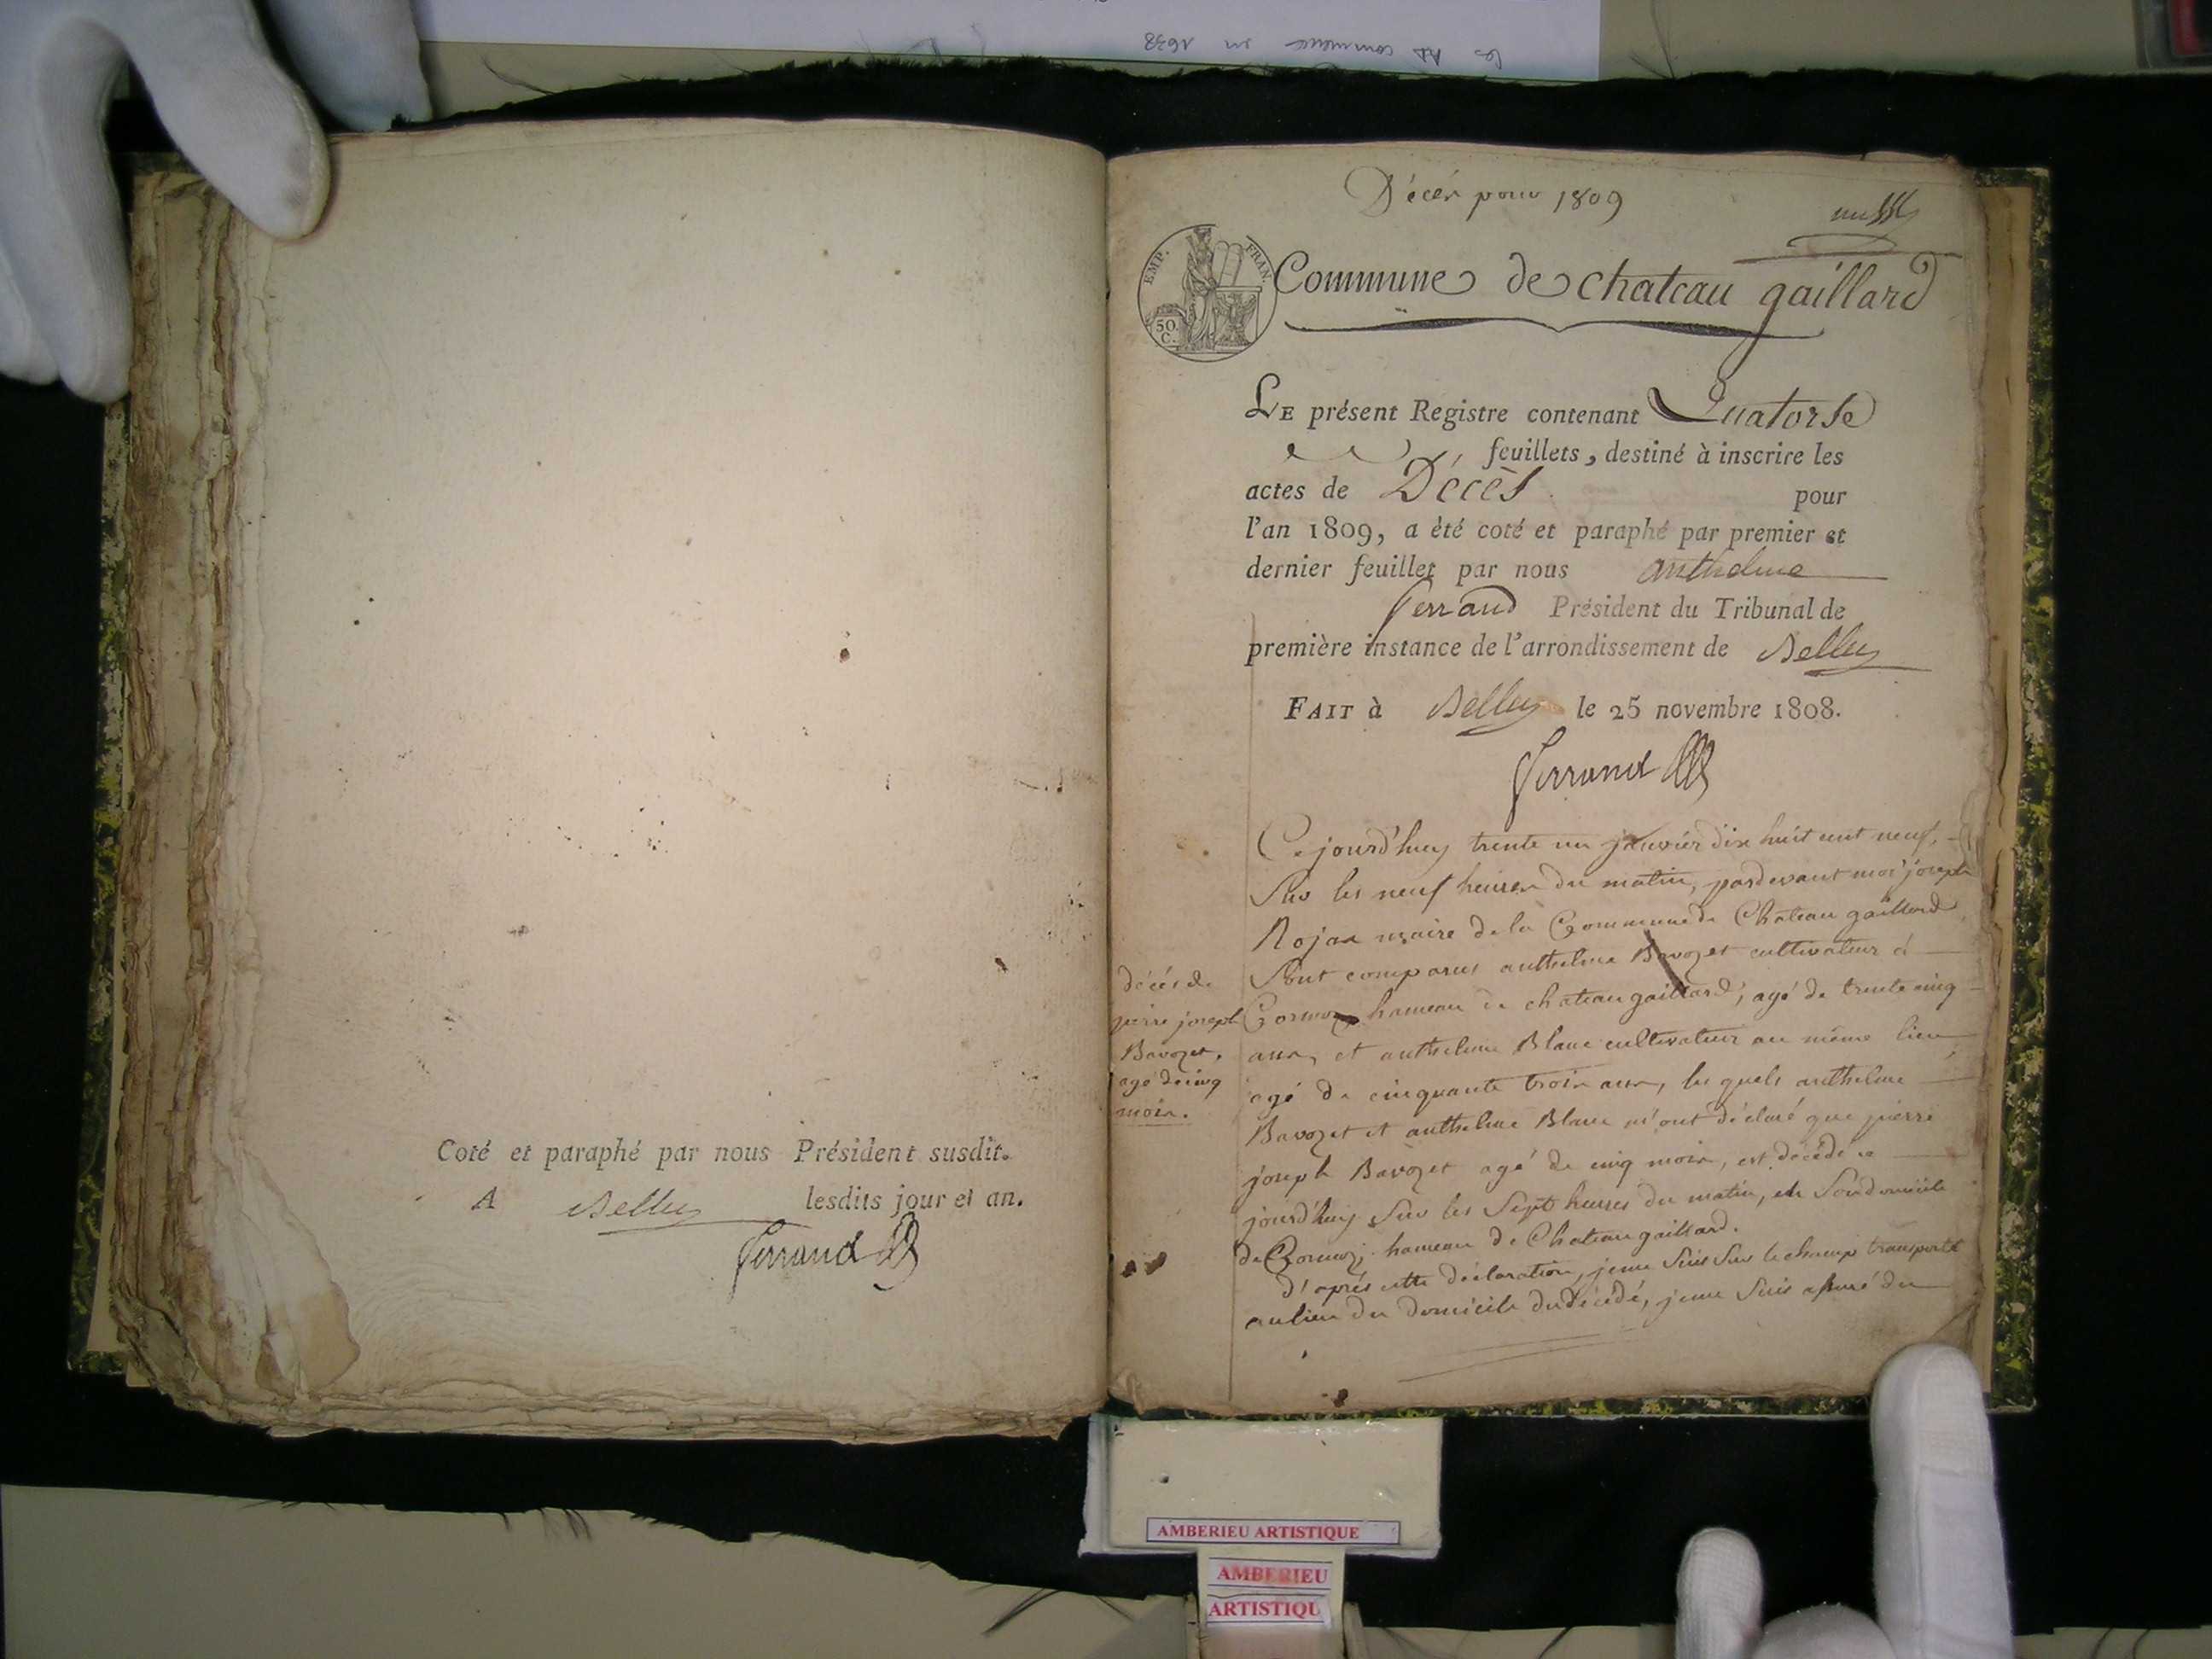 Les Ads commence en 1638
Coté et paraphé par nous Président susdit.
A Belley lesdits jour et an.
Ferrand
Décès pour 1809
EMP. FRAN.
50.
C.
Commune de chateau gaillard
LE présent Registre contenant Quatorse
feuillets, destiné à inscrire les
actes de Décès pour
l'an 1809, a été coté et paraphé par premier et
dernier feuillet par nous anthelme
ferrand Président du Tribunal de
première instance de l'arrondissement de Belley
FAIT à Belley le 25 novembre 1808.
Ferrand
décès de
pierre joseph
Bavozet,
agé de cinq
mois.
Cejourd'huy trente un janvier dix huit cent neuf,
Sur les neuf heures du matin, pardevant moi joseph
Rojan maire de la Commune de Chateau gaillard
Sont comparus anthelme Bavozet cultivateur à
Cormoz hameau de chateau gaillard, agé de trente cinq
ans, et anthelme Blanc cultivateur au même lieu,
agé de cinquante trois ans, les quels anthelme
Bavozet et anthelme Blanc m'ont déclaré que pierre
joseph Bavozet agé de cinq mois, est décédé ce
jourd'huy Sur les Sept heures du matin, en Son domicile
de Cormoz, hameau de Chateau gaillard.
D'après cette déclaration, je me Suis Sur le champ transporté
au lieu du domicile du décédé, je me Suis assuré du
AMBERIEU ARTISTIQUE
AMBERIEU
ARTISTIQU